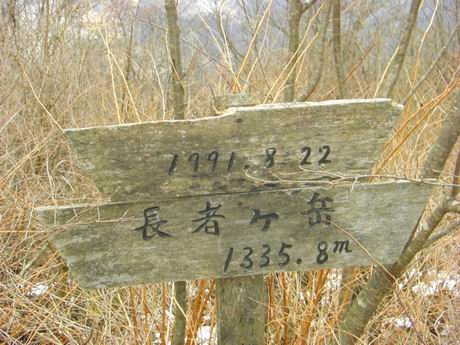 1991.8.22
長者ケ岳
1335.8m